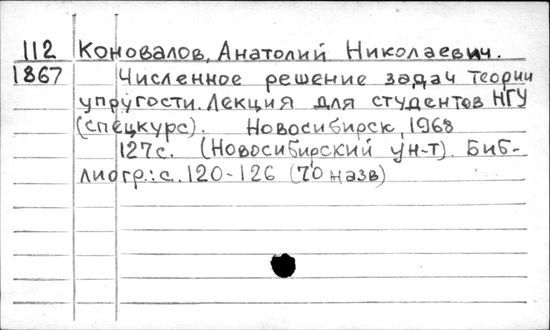 112 Коновалов, Анатолий Николаевич.
1867 Численное решение задач теории
упругости. Лекция для студентов НГУ
(спецкурс). Новосибирск, 1968
127с. (Новосибирский ун-т). Биб-
лиогр.: с. 120-126 (70 назв)